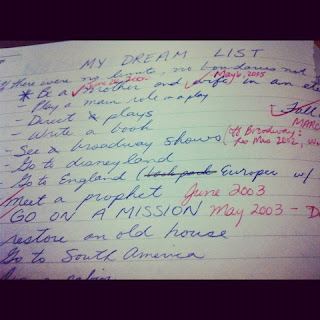 MY DREAM LIST
If there were no limits, no boundaries not
* Be a mother and wife in an ete
May 6, 2005
- Play a main role in a play
- Direct plays
Fall
- Write a book
MARC
- See broadway shows (off Broadway:
Les Mis 2002,
- Go to disneyland
- Go to England (Europe w/
Meet a prophet June 2003
GO ON A MISSION May 2003 - D
restore an old house
Go to South America